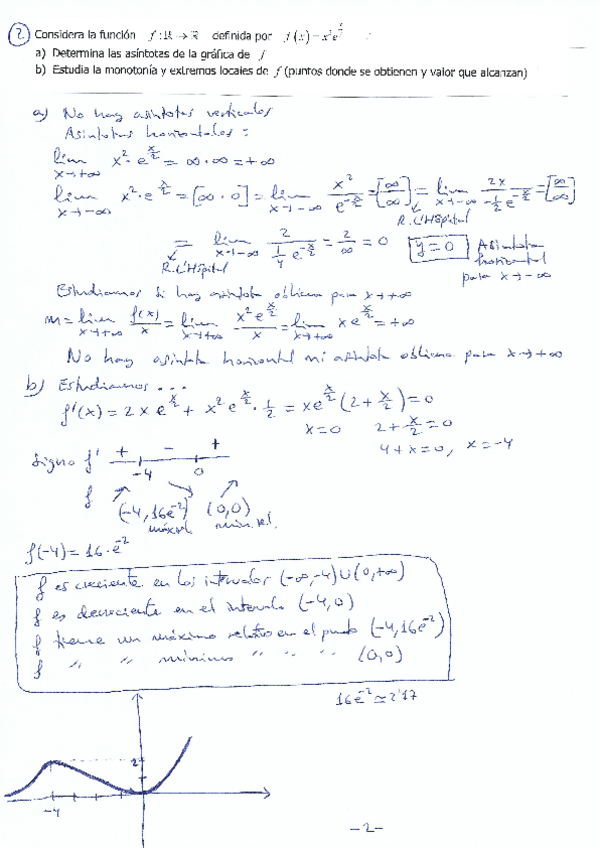 2 Considera la función f : ℝ → ℝ definida por f(x) = x²e^(x/2)
a) Determina las asíntotas de la gráfica de f
b) Estudia la monotonía y extremos locales de f (puntos donde se obtienen y valor que alcanzan)
a) No hay asíntotas verticales
Asíntotas horizontales:
lim x→+∞ x²·e^(x/2) = ∞·∞ = +∞
lim x→-∞ x²·e^(x/2) = [∞·0] = lim x→-∞ x²/e^(-x/2) = [∞/∞] = lim x→-∞ 2x/(-1/2 e^(-x/2)) = [∞/∞]
R. L'Hôpital
= lim x→-∞ 2/(1/4 e^(-x/2)) = 2/∞ = 0 y=0 Asíntota horizontal para x→-∞
R. L'Hôpital
Estudiamos si hay asíntota oblicua para x→+∞
m = lim x→+∞ f(x)/x = lim x→+∞ x²e^(x/2)/x = lim x→+∞ xe^(x/2) = +∞
No hay asíntota horizontal ni asíntota oblicua para x→+∞
b) Estudiamos ...
f'(x) = 2xe^(x/2) + x²e^(x/2)·1/2 = xe^(x/2)(2+x/2) = 0
x=0 2+x/2=0
4+x=0, x=-4
Signo f' + - +
-4 0
f (-4, 16e⁻²) (0,0)
máx rel. mín. rel.
f(-4) = 16·e⁻²
f es creciente en los intervalos (-∞,-4)∪(0,+∞)
f es decreciente en el intervalo (-4,0)
f tiene un máximo relativo en el punto (-4,16e⁻²)
f " " mínimo " " " (0,0)
16e⁻² ≃ 2'17
2
-4
-2-